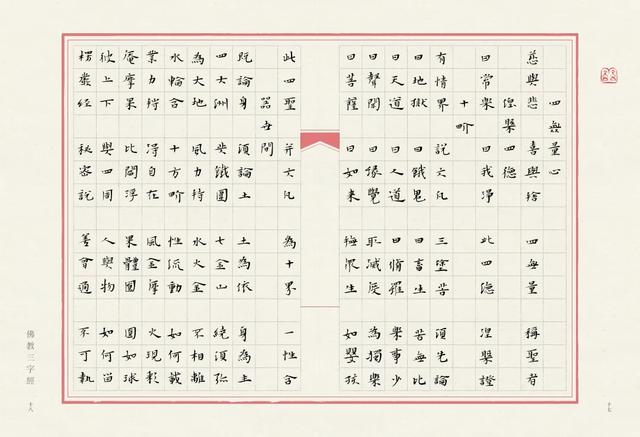 四無量心
慈與悲 喜與捨 四無量 稱聖者
涅槃四德
曰常樂 曰我淨 此四德 涅槃證
十畍
有情界 說大凡 三塗苦 須先論
曰地獄 曰餓鬼 曰畜生 苦無比
曰天道 曰人道 曰脩羅 樂事少
曰聲聞 曰緣覺 取滅度 為獨樂
曰菩薩 曰如來 眾生 如嬰孩
十七
此四聖 并六凡 為十界 一性含
器世間
既論身 須論土 土為依 身為主
四大洲 鐵圍 七金山 繞須彌
為大地 風力持 水火金 不相離
水輪含 十方畍 性流動 如何載
業力持 得自在 風金摩 火現彩
菴摩果 比閻浮 果體圓 圓如球
彼上下 與四周 人與物 如何留
楞嚴經 秘密說 善會通 不可執
佛教三字經
十八